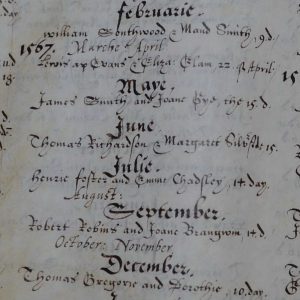 Februarie.
William Southwood & Maud Smith, 9 d.
1567. Marche & April
ap Evans & Eliza: Elam 22. April.
Maye.
James Smith and Joane Pye, the 15. d.
June
Thomas Richardson & Margaret 15.
Julie.
Henrie Foster and Emme Chadsley, 14 day.
August:
September.
Robert Robins and Joane Brangwin 1 d.
October: November
December.
Thomas Gregorie and Dorothie, 10, day.